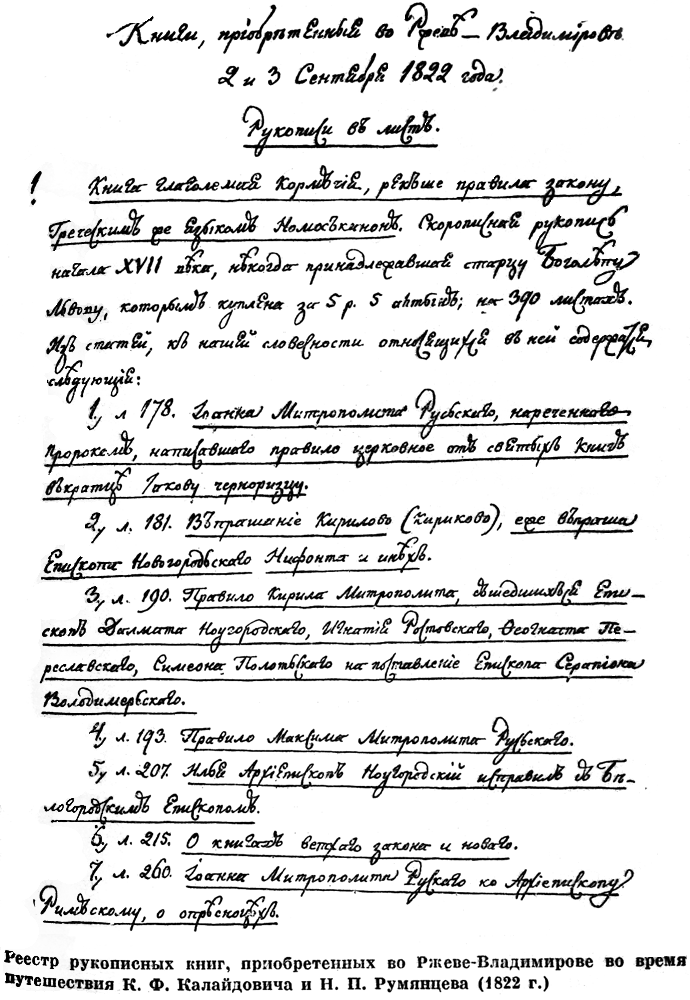 Книги, пріобрѣтенныя во Ржевѣ-Владиміровѣ
2 и 3 Сентября 1822 года.
Рукописи въ листъ.
1. Книга глаголемая Кормчія, рекѣше правила закону,
Греческимъ же языкомъ Номоѣканонъ. Скорописная рукопись
начала XVII вѣка, нѣкогда принадлежавшая старцу Боголѣпу
Львову, которымъ куплена за 5 р. 5 алтынъ; на 390 листахъ.
Изъ статей, къ нашей словесности относящихся въ ней содержатся
слѣдующія:
1, л 178. Іоанна Митрополита Русьскаго, нареченнаго
пророкомъ, написавшаго правило церковное отъ святыхъ книгъ
въкратцѣ Іакову черноризцу.
2, л. 181. Въпрашаніе Кирилово (Кириково), еже въпраша
Епископа Новогородьскаго Нифонта и инѣхъ.
3, л. 190. Правило Кирила Митрополита, съшедшихъся Епи-
скопъ Далмата Ноугородскаго, Игнатія Ростовскаго, Ѳеогнаста Пе-
реславскаго, Симеона Полотьскаго на поставленіе Епископа Серапіона
Володимерьскаго.
4, л. 193. Правило Максима Митрополита Русьскаго.
5, л. 207. Илья Архіепископъ Ноугородскій исправилъ съ Бѣ-
логородскимъ Епископомъ.
6, л. 215. О книгахъ ветхаго закона и новаго.
7, л. 260. Іоанна Митрополита Рускаго ко Архіепископу
Римьскому, о опрѣсноцѣхъ.
Реестр рукописных книг, приобретенных во Ржеве-Владимирове во время
путешествия К. Ф. Калайдовича и Н. П. Румянцева (1822 г.)